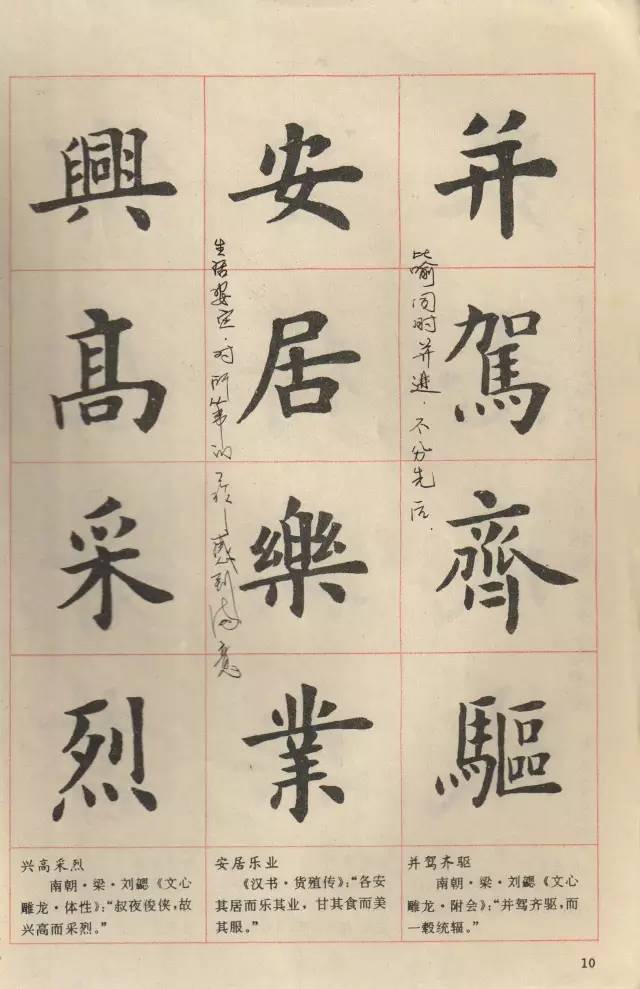 并駕齊驅
比喻同时并进.不分先后.
安居樂業
生活安定.对所从事的工作感到满意
興髙采烈
并驾齐驱
南朝·梁·刘勰《文心
雕龙·附会》:“并驾齐驱,而
一毂统辐。”
安居乐业
《汉书·货殖传》:“各安
其居而乐其业,甘其食而美
其服。”
兴高采烈
南朝·梁·刘勰《文心
雕龙·体性》:“叔夜俊侠,故
兴高而采烈。”
10